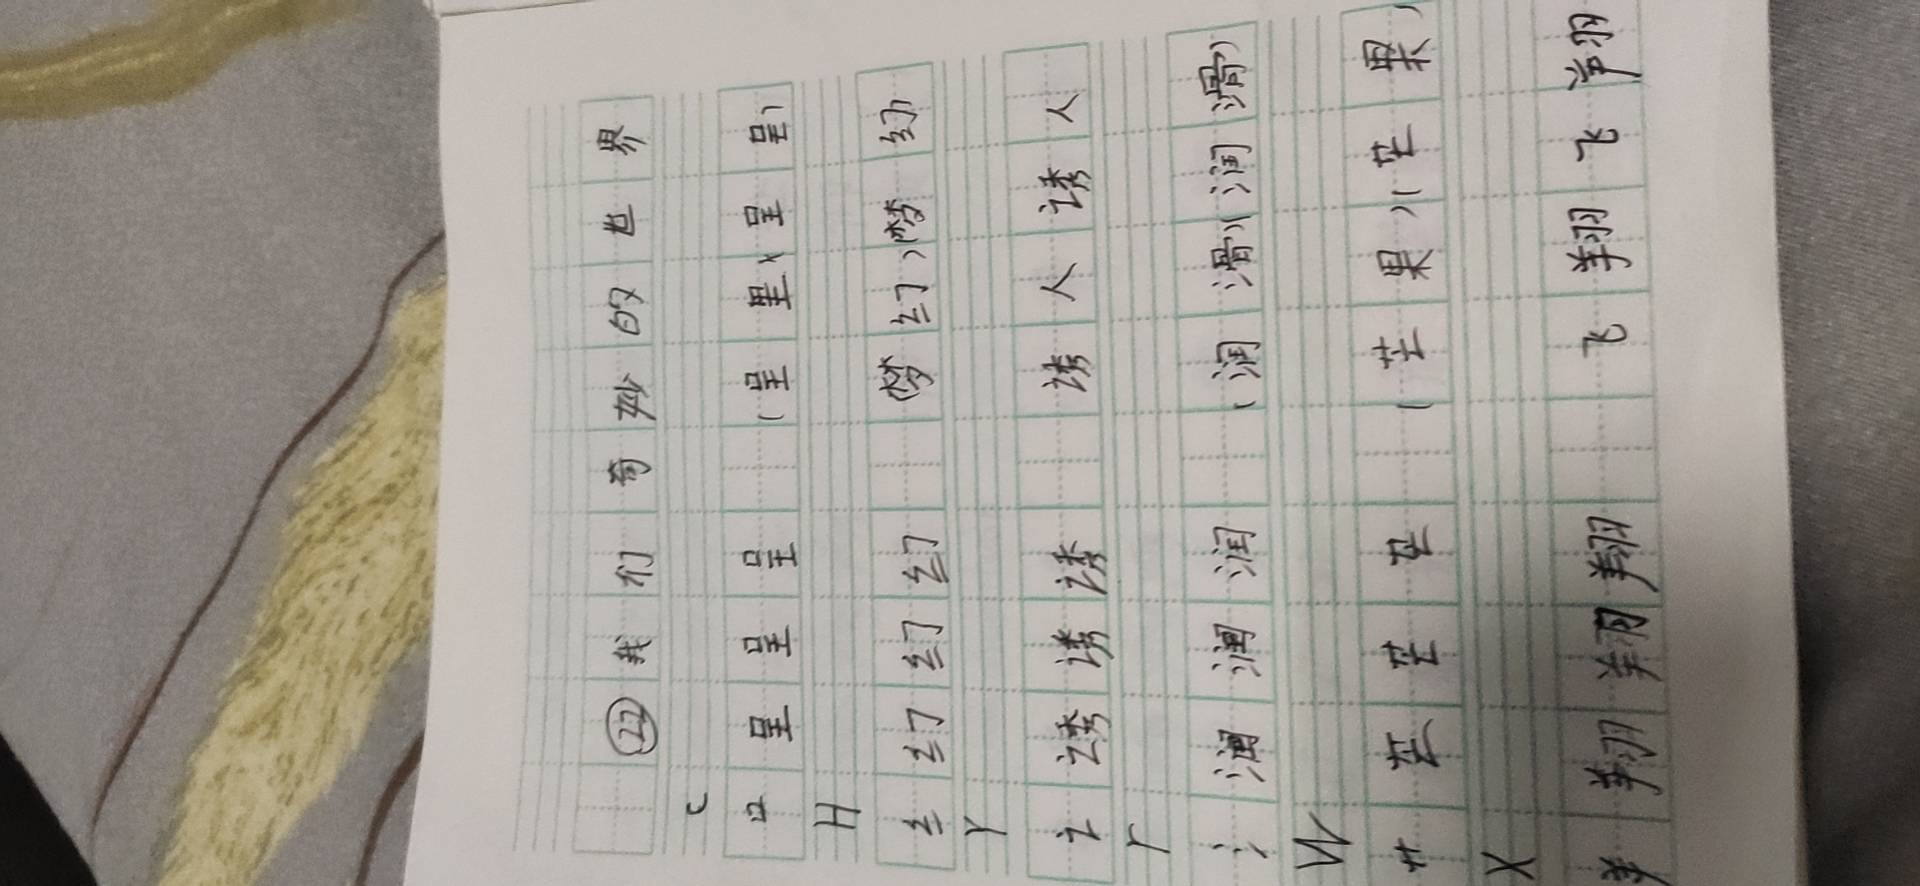 ㉒我们奇妙的世界
C
口呈呈呈(呈里)(呈呈)
H
幺幻幻幻梦幻)梦幻
Y
讠诱诱诱诱人诱人
r
氵润润润(润滑)(润滑)
W
艹芒芒芒(芒果)(芒果)
X
羊翔翔翔飞翔飞翔